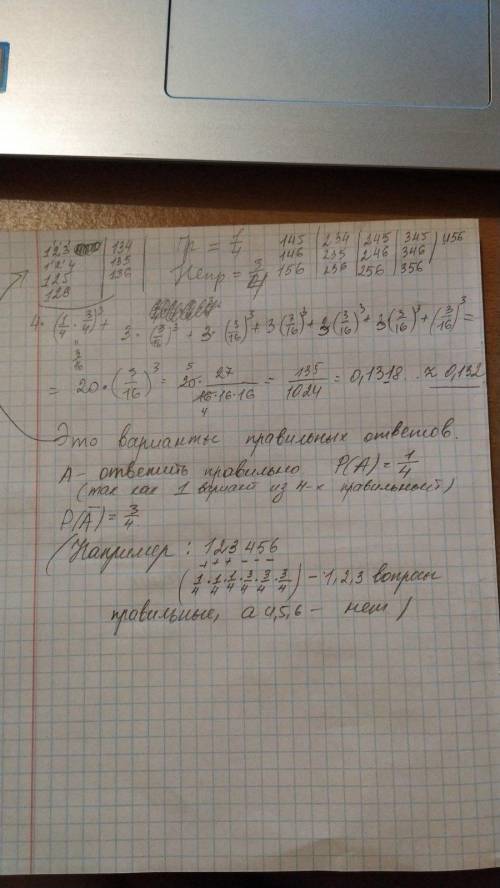 123 | 134 | Пр = 1/4 145 | 234 | 245 | 345 | 456
124 | 135 | 146 | 235 | 246 | 346
125 | 136 | Непр = 3/4 156 | 236 | 256 | 356
126
4·(1/4·3/4)³ + 3·(3/16)³ + 3·(3/16)³ + 3(3/16)³ + 3(3/16)³ + 3(3/16)³ + (3/16)³ =
3/16
= 20·(3/16)³ = 20·27/16·16·16 = 135/1024 = 0,1318 ≈ 0,132
Это варианты правильных ответов.
А – ответить правильно P(A) = 1/4
(так как 1 вариант из 4-х правильный)
P(Ā) = 3/4
(Например: 123456
+ + + - - -
(1/4·1/4·1/4·3/4·3/4·3/4) – 1,2,3 вопросы
правильные, а 4,5,6 – нет)